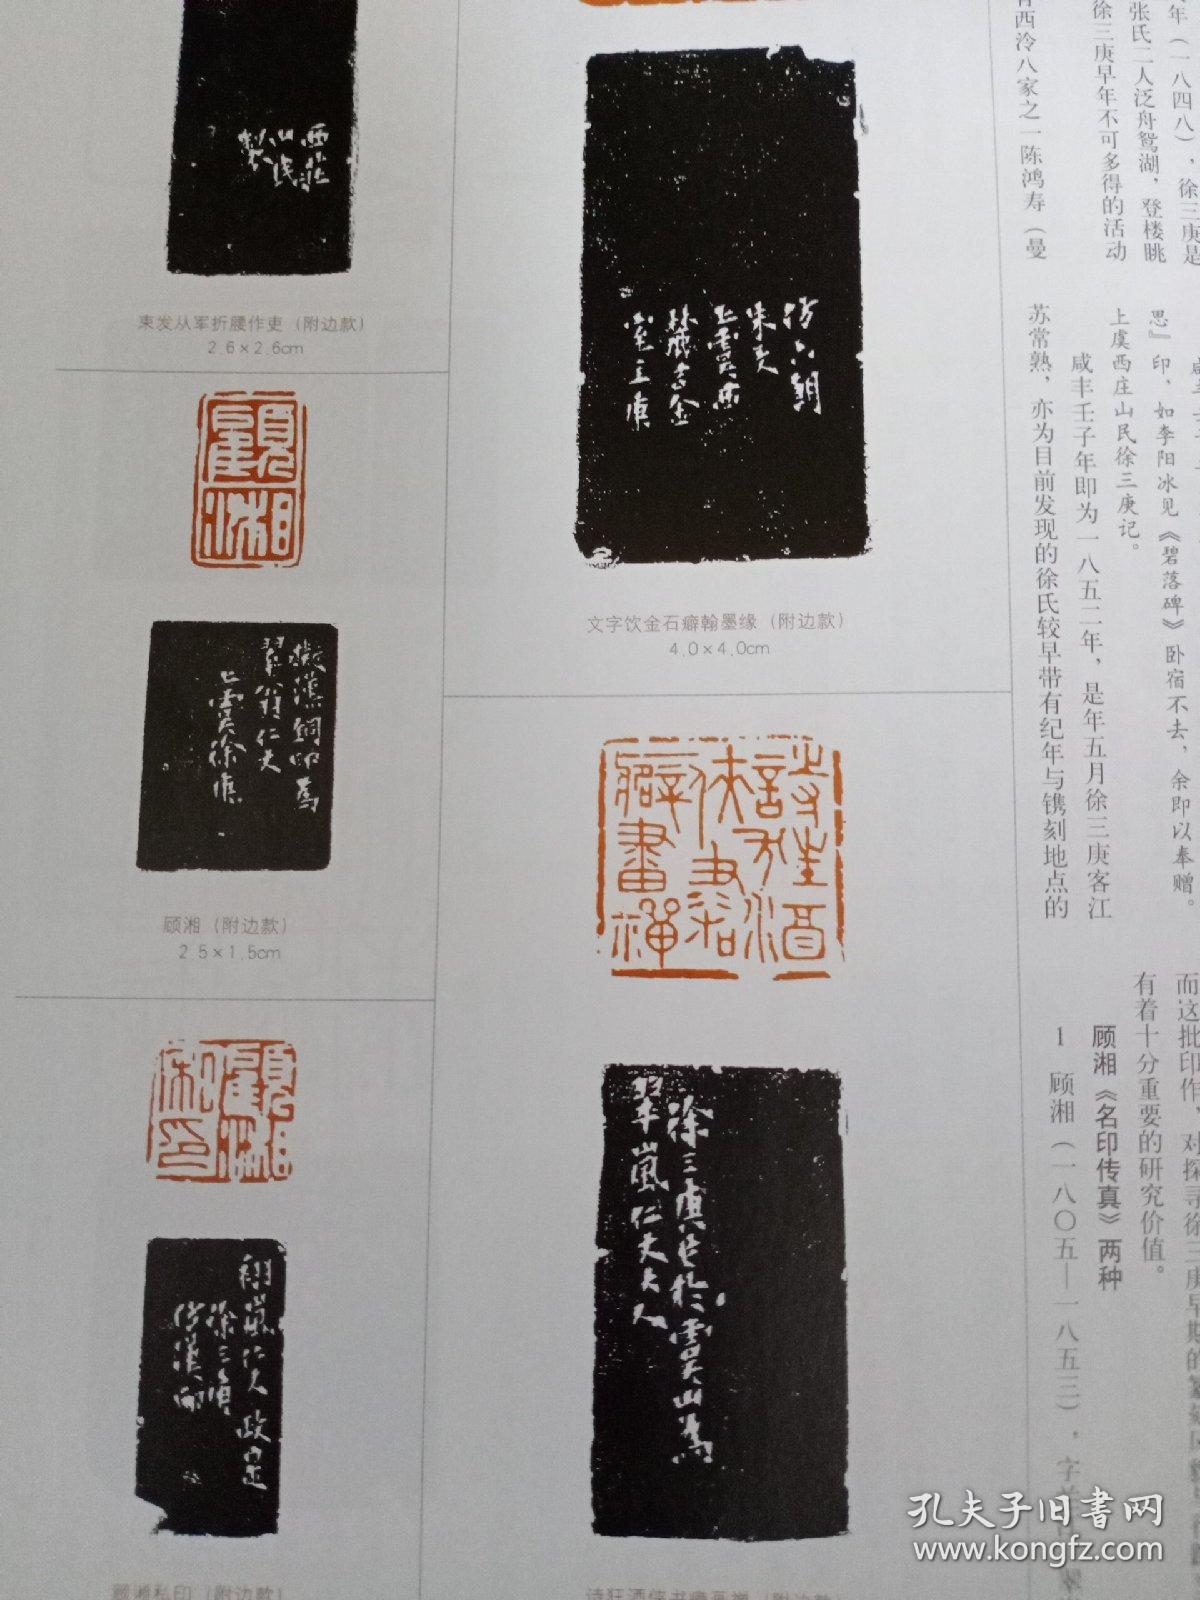 西莊
山民
製
束发从军折腰作吏（附边款）
2.6×2.6cm
顧湘
擬漢銅印為
翠嵐仁丈
上虞徐庚
顾湘（附边款）
2.5×1.5cm
顧湘私印
翠嵐仁丈政定
徐三庚
仿漢印
顾湘私印（附边款）
仿六朝
朱文
上虞西
室主庚
文字饮金石癖翰墨缘（附边款）
4.0×4.0cm
詩狂酒俠書癖畫禪
徐三庚作於虞山為
翠嵐仁丈大人
年（一八四八），徐三庚是
张氏二人泛舟鸳湖，登楼眺
徐三庚早年不可多得的活动
西泠八家之一陈鸿寿（曼
思』印，如李阳冰见《碧落碑》卧宿不去，余即以奉赠。
上虞西庄山民徐三庚记。
咸丰壬子年即为一八五二年，是年五月徐三庚客江
苏常熟，亦为目前发现的徐氏较早带有纪年与镌刻地点的
而这批印作，对探寻徐三庚早期的篆刻
有着十分重要的研究价值。
顾湘《名印传真》两种
1 顾湘（一八〇五—一八五三），字
孔夫子旧书网
www.kongfz.com